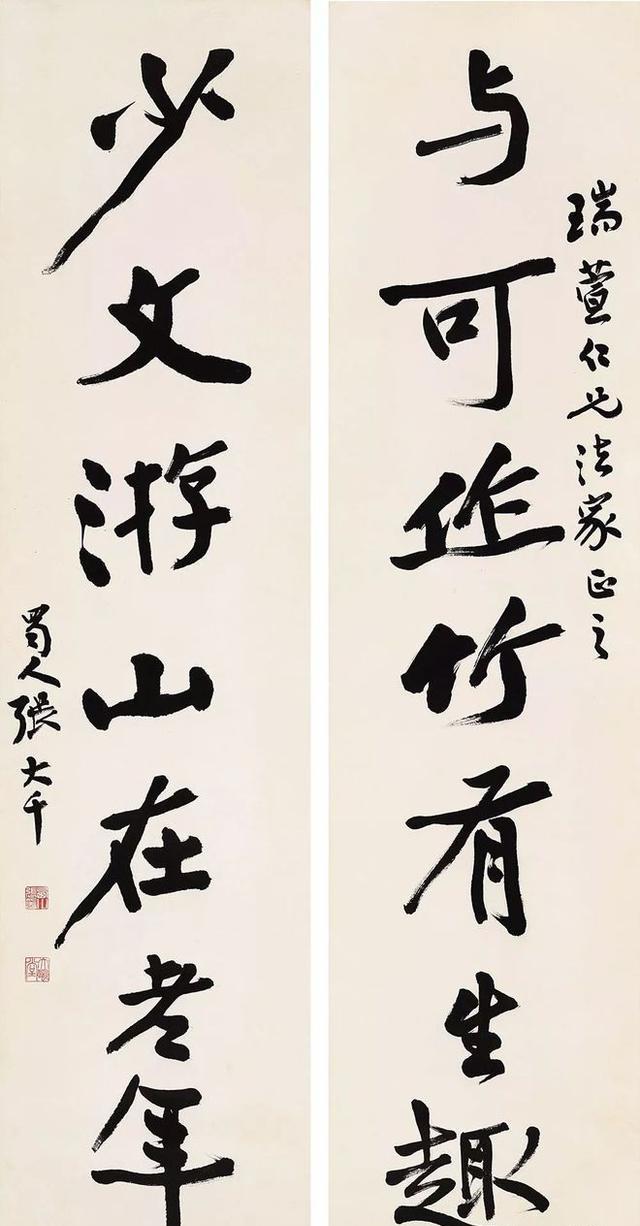 瑞萱仁兄法家正之
与可作竹有生趣
少文游山在老年
蜀人張大千